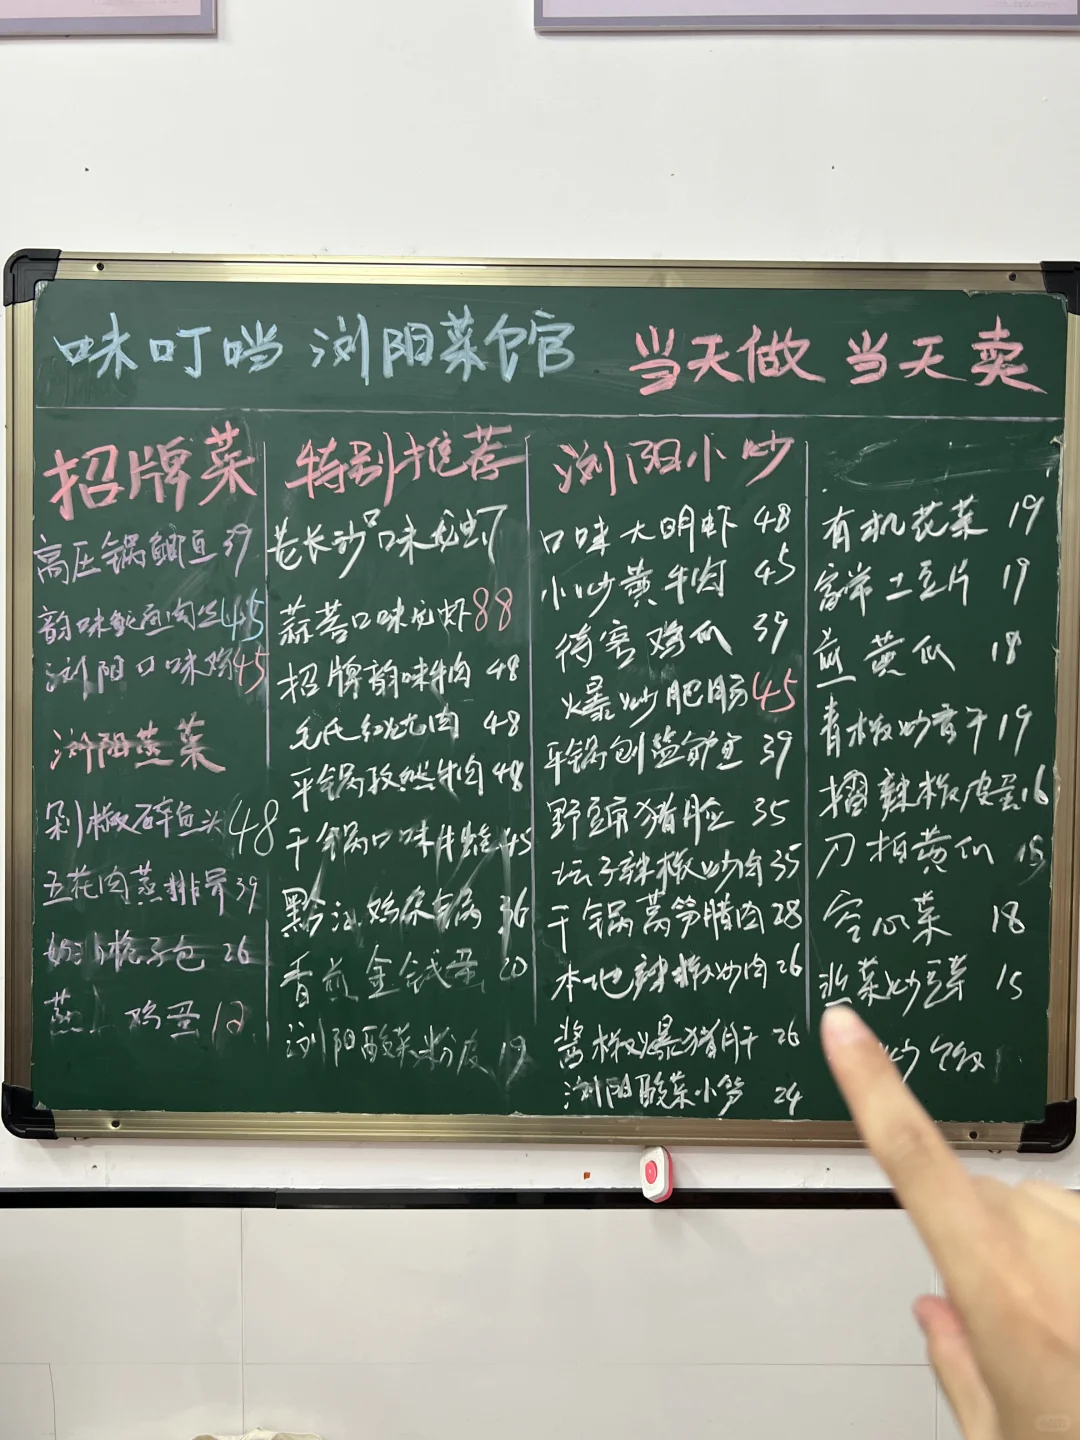 味叮当 浏阳菜馆 当天做 当天卖
招牌菜
高压锅鲫鱼 39
韵味鱿鱼肉丝 45
浏阳口味鸡 45
浏阳蒸菜
剁椒碎鱼头 48
五花肉蒸排骨 39
包 26
蒸 鸡蛋 12
特别推荐
老长沙口味龙虾
蒜苔口味龙虾 88
招牌韵味牛肉 48
毛氏红烧肉 48
平锅孜然牛肉 48
干锅口味牛蛙 45
香煎金钱蛋 20
浏阳酸菜粉皮 19
浏阳小炒
口味大明虾 48
小炒黄牛肉 45
待客鸡爪 39
爆炒肥肠 45
平锅刨盐鱼 39
野 猪脸 35
坛子辣椒炒肉 35
干锅莴笋腊肉 28
本地辣椒炒肉 26
酱椒爆猪肝 26
浏阳酸菜小笋 24
有机花菜 19
家常土豆片 19
煎黄瓜 18
青椒炒香干 19
擂辣椒皮蛋 16
刀拍黄瓜 15
空心菜 18
菜炒豆芽 15
炒饭